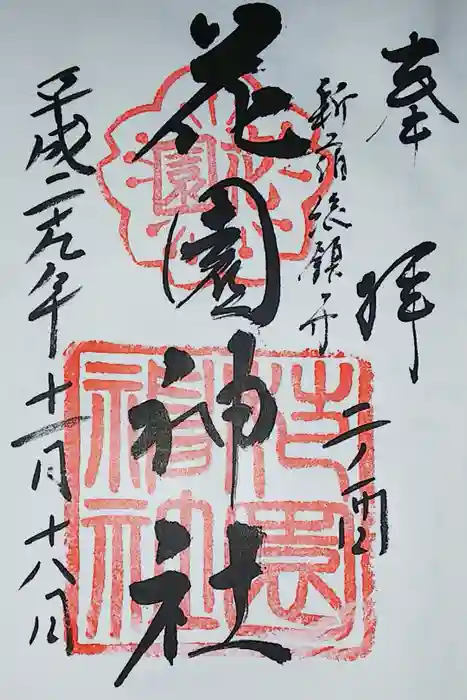 奉拝
新宿総鎮守
二ノ酉
花園神社
平成二十九年十一月十八日
園
花園神社